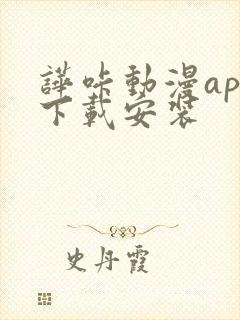 譁咔動漫ap
下載安裝
史丹霞